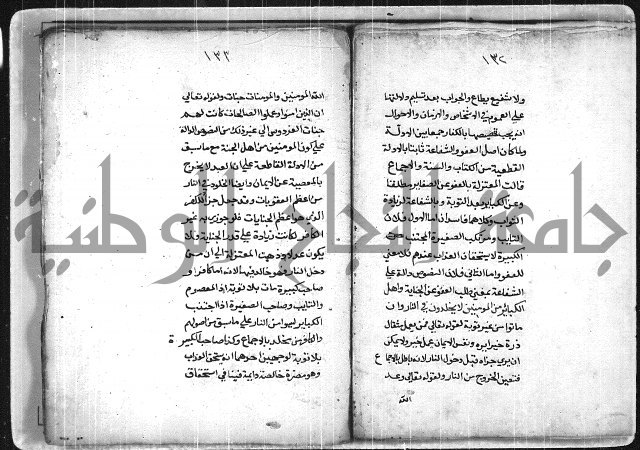 ١٣٢
ولا شفيع يطاع والجواب بعد تسليم دلالتها
على العموم في الاشخاص والازمان والاحوال
انه يجب تخصيصها بالكفار جمعا بين الادلة
ولما كان اصل العفو والشفاعة ثابتا بالادلة
القطعية من الكتاب والسنة والاجماع
قالت المعتزلة بالعفو عن الصغاير مطلقا
وعن الكباير بعد التوبة وبالشفاعة لزيادة
الثواب وكلاهما فاسد اما الاول فلان
التايب ومرتكب الصغيرة المجتنب عن
الكبيرة لا يستحقان العذاب عندهم فلا معنى
للعفو واما الثاني فلان النصوص دالة على
الشفاعة بمعنى طلب العفو عن الجناية واهل
الكباير من المومنين لا يخلدون في النار وان
ماتوا من غير توبة لقوله تعالى فمن يعمل مثقال
ذرة خيرا يره ونفس الايمان عمل خير لا يمكن
ان يرى جزاه قبل دخول النار لانه باطل بالاجماع
فتعين الخروج من النار ولقوله تعالى وعد
الله
١٣٣
الله المومنين والمومنات جنات ولقوله تعالى
ان الذين امنوا وعملوا الصالحات كانت لهم
جنات الفردوس الى غير ذلك من النصوص الدالة
على كون المومنين من اهل الجنة مع ما سبق
من الادلة القاطعة على ان العبد لا يخرج
بالمعصية عن الايمان وايضا الخلود في النار
من اعظم العقوبات وقد جعل جزا للكفر
الذي هو اعظم الجنايات فلو جوزي به غير
الكافر لكانت زيادة على قدر الجناية فلا
يكون عدلا وذهبت المعتزلة الى ان من
دخل النار فهو خالد فيها لانه اما كافر او
صاحب كبيرة مات بلا توبة اذ المعصوم
والتايب وصاحب الصغيرة اذا اجتنب
الكباير ليسوا من النار على ما سبق من اصولهم
والكافر مخلد بالاجماع وكذا صاحب الكبيرة
بلا توبة لوجهين احدهما انه يستحق العذاب
وهو مضرة خالصة دايمة فينافي استحقاق
جامعة نجاح الوطنية